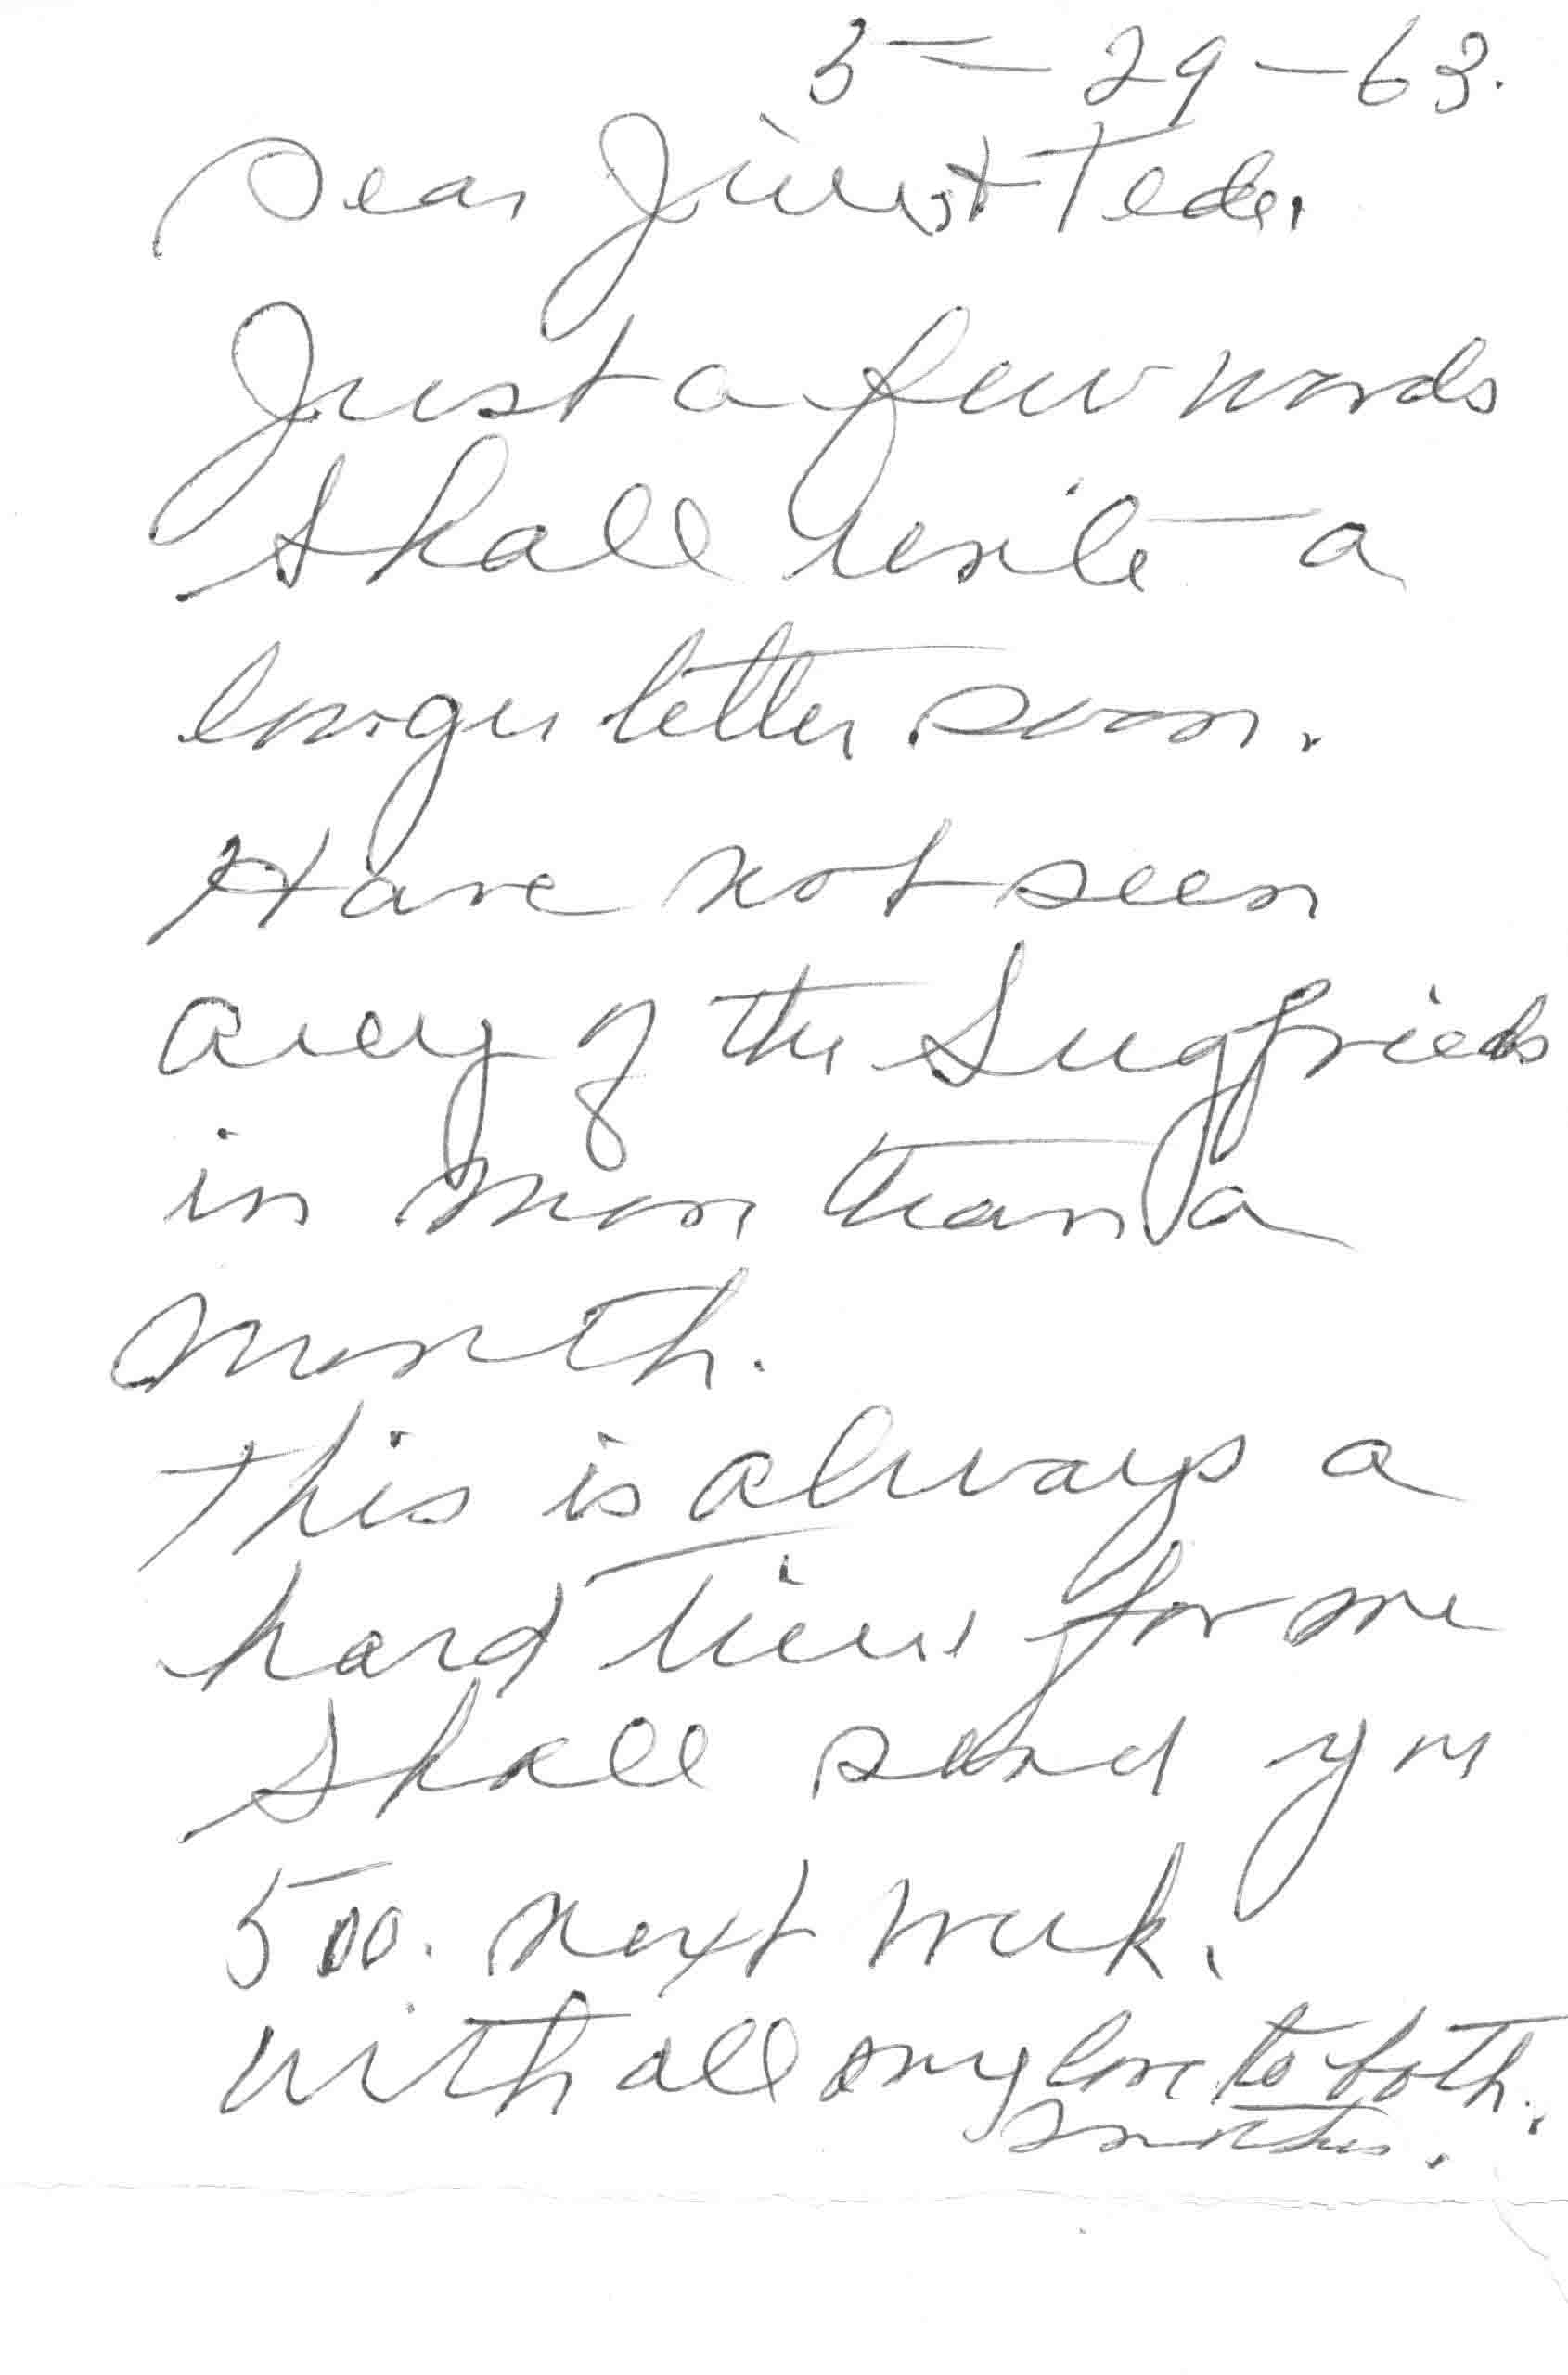 5 - 29 - 63.
Dear Jim + Teda,
Just a few words
shall write a
longer letter soon.
Have not seen
any of the Siegfrieds
in more than a
month.
This is always a
hard time for me
shall send you
500. next week.
With all my love to both.
Mother.